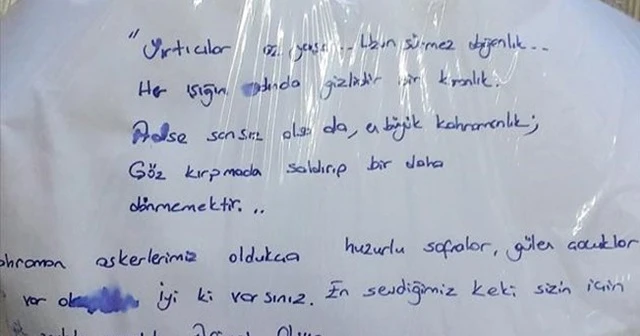 "Yırtıcılar az yaşar.. Uzun sürmez doğanlık..
Her ışığın ardında gizlidir bir karanlık.
Adse sansız olsa da, en büyük kahramanlık;
Göz kırpmada saldırıp bir daha
dönmemektir...
ahraman askerlerimiz oldukça huzurlu sofralar, gülen çocuklar
var İyi ki varsınız. En sevdiğimiz keki sizin için